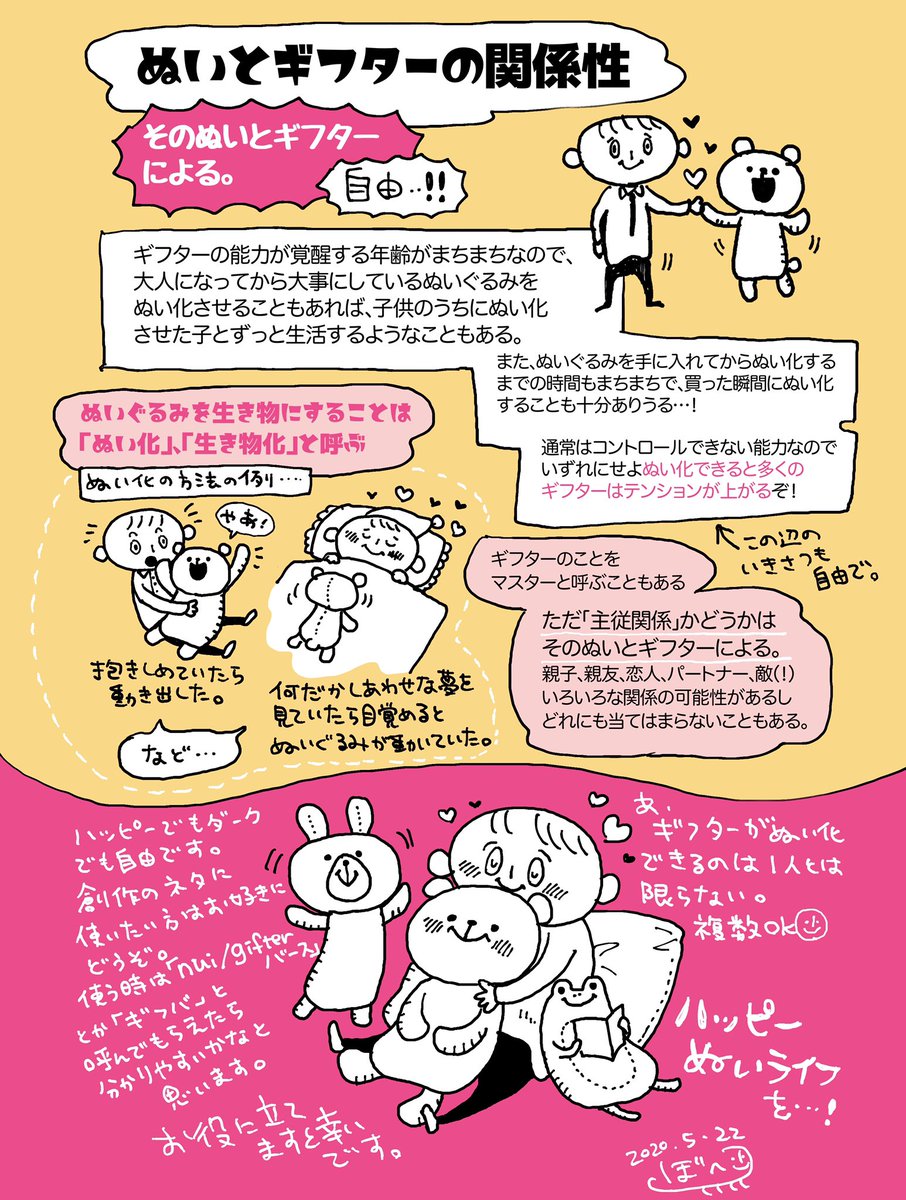 ぬいとギフターの関係性
そのぬいとギフター
による。
自由…!!
ギフターの能力が覚醒する年齢がまちまちなので、
大人になってから大事にしているぬいぐるみを
ぬい化させることもあれば、子供のうちにぬい化
させた子とずっと生活するようなこともある。
また、ぬいぐるみを手に入れてからぬい化する
までの時間もまちまちで、買った瞬間にぬい化
することも十分ありうる…!
通常はコントロールできない能力なので
いずれにせよぬい化できると多くの
ギフターはテンションが上がるぞ!
←この辺の
いきさつも
自由で。
ぬいぐるみを生き物にすることは
「ぬい化」、「生き物化」と呼ぶ
ぬい化の方法の例……
やあ!
抱きしめていたら
動き出した。
何だかしあわせな夢を
見ていたら目覚めると
ぬいぐるみが動いていた。
など…
ギフターのことを
マスターと呼ぶこともある
ただ「主従関係」かどうかは
そのぬいとギフターによる。
親子、親友、恋人、パートナー、敵(!)
いろいろな関係の可能性があるし
どれにも当てはまらないこともある。
ハッピーでもダーク
でも自由です。
創作のネタに
使いたい方はお好きに
どうぞ。
使う時は「nui/gifter
バース」
とか「ギフバ」と
呼んでもらえたら
分かりやすいかなと
思います。
お役に立て
ますと幸い
です。
あ、
ギフターがぬい化
できるのは1人とは
限らない。
複数OK
ハッピー
ぬいライフ
を…!
2020.5.22
ぼへ